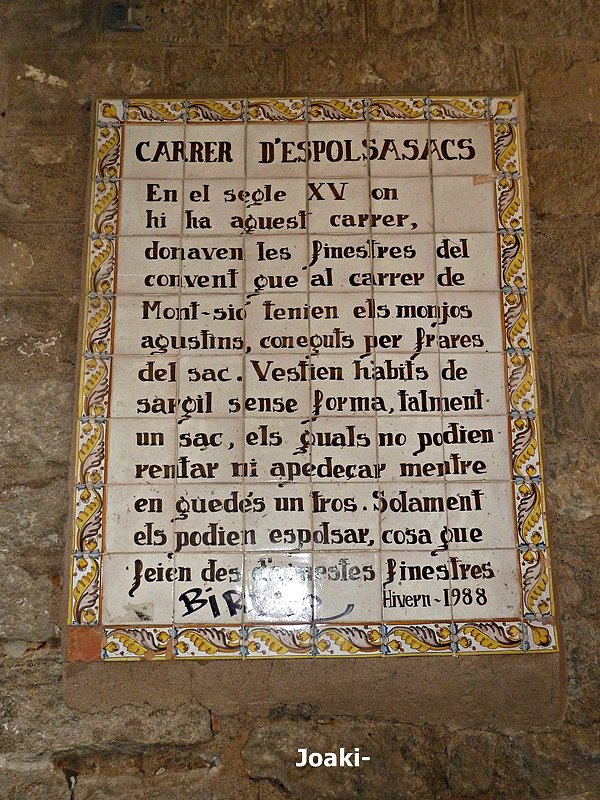 CARRER D'ESPOLSASACS
En el segle XV on
hi ha aquest carrer,
donaven les finestres del
convent que al carrer de
Mont-sió tenien els monjos
agustins, coneguts per frares
del sac. Vestien hàbits de
sargil sense forma, talment
un sac, els quals no podien
rentar ni apedaçar mentre
en quedés un tros. Solament
els podien espolsar, cosa que
feien des d'aquestes finestres
Hivern-1988
Joaki-